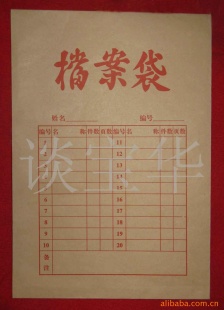 檔案袋
姓名 编号
编号 名 称 件数 页数 编号 名 称 件数 页数
1 11
2 12
3 13
4 14
5 15
6 16
7 17
8 18
9 19
10 20
备注
谈宝华
alibaba.com.cn